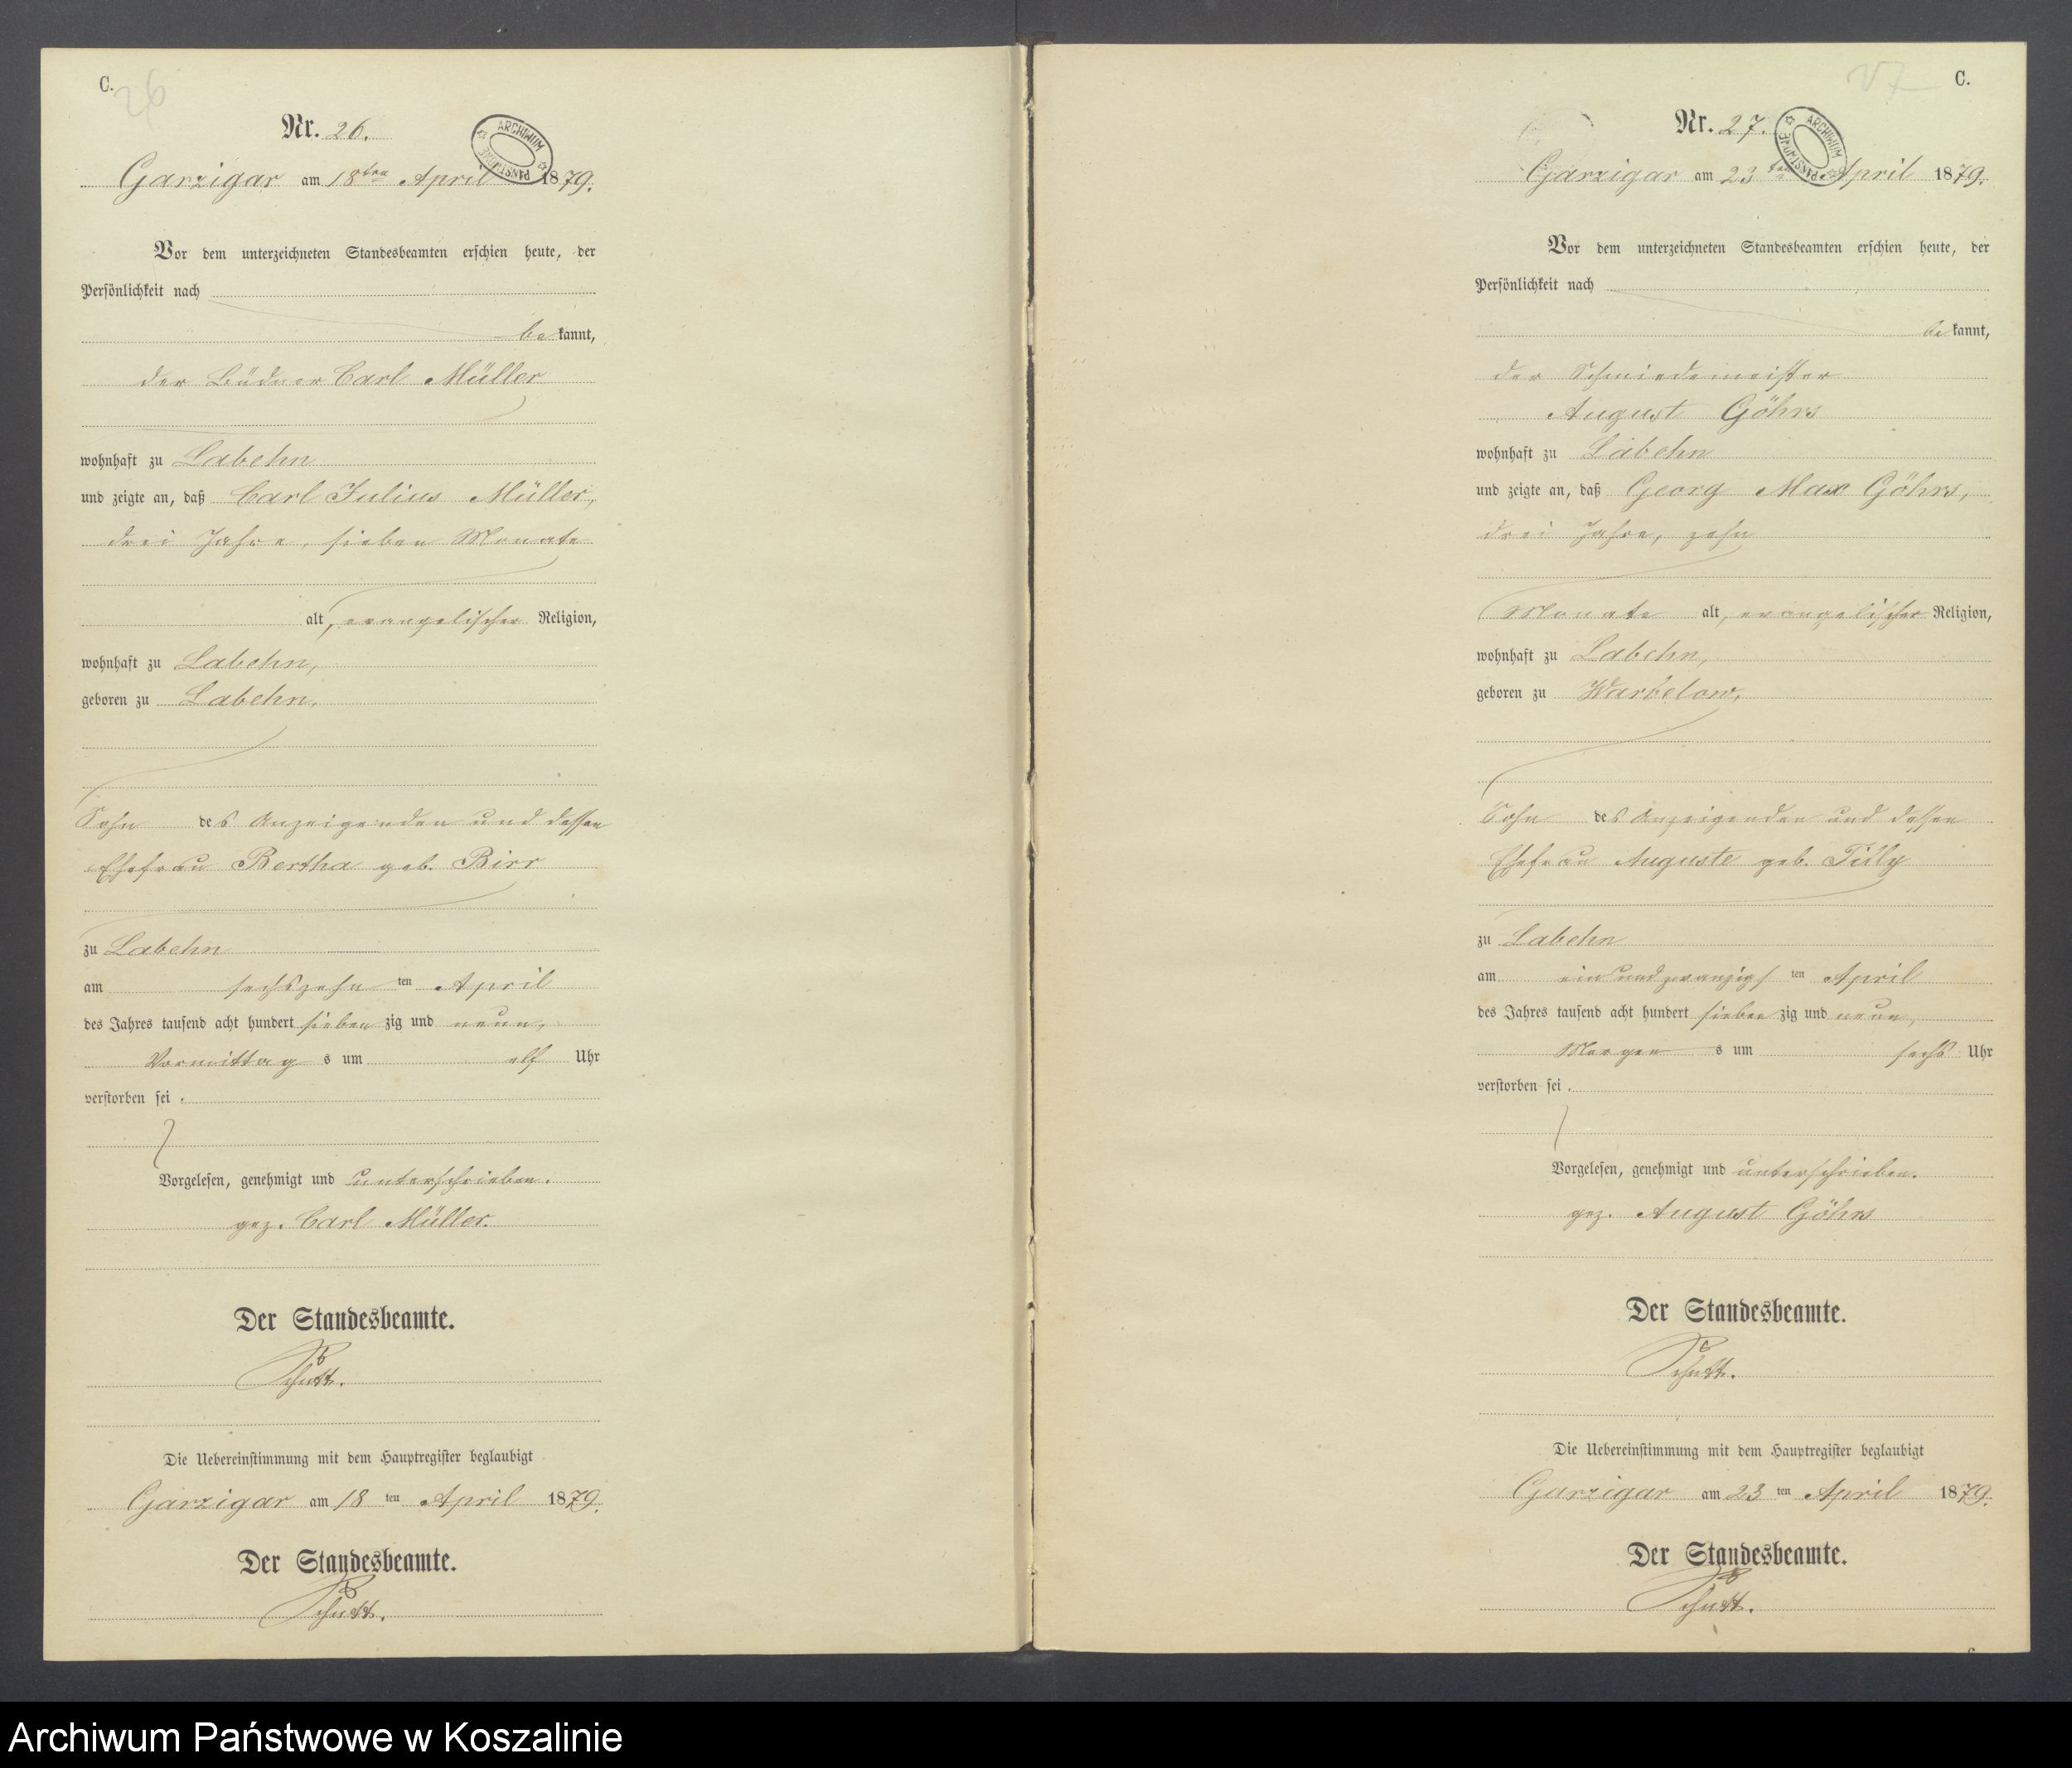 C.
26
Nr. 26.
ARCHIWUM PAŃSTWOWE
Garzigar am 18ten April 1879.
Vor dem unterzeichneten Standesbeamten erschien heute, der
Persönlichkeit nach
be kannt,
der Büdner Carl Müller
wohnhaft zu Labehn
und zeigte an, daß Carl Julius Müller,
drei Jahre, sieben Monate
alt, evangelischer Religion,
wohnhaft zu Labehn,
geboren zu Labehn,
Sohn des Anzeigenden und dessen
Ehefrau Bertha geb. Birr
zu Labehn
am sechszehn ten April
des Jahres tausend acht hundert sieben zig und neun,
Vormittag s um elf Uhr
verstorben sei.
Vorgelesen, genehmigt und unterschrieben.
gez. Carl Müller.
Der Standesbeamte.
Schutt.
Die Uebereinstimmung mit dem Hauptregister beglaubigt
Garzigar am 18 ten April 1879.
Der Standesbeamte.
Schutt.
27
C.
Nr. 27.
ARCHIWUM PAŃSTWOWE
Garzigar am 23ten April 1879.
Vor dem unterzeichneten Standesbeamten erschien heute, der
Persönlichkeit nach
be kannt,
der Schmiedemeister
August Göhrs
wohnhaft zu Labehn
und zeigte an, daß Georg Max Göhrs,
drei Jahre, zehn
Monate alt, evangelischer Religion,
wohnhaft zu Labehn,
geboren zu Warbelow,
Sohn des Anzeigenden und dessen
Ehefrau Auguste geb. Tilly
zu Labehn
am einundzwanzigs ten April
des Jahres tausend acht hundert sieben zig und neun,
Morgen s um sechs Uhr
verstorben sei.
Vorgelesen, genehmigt und unterschrieben.
gez. August Göhrs
Der Standesbeamte.
Schutt.
Die Uebereinstimmung mit dem Hauptregister beglaubigt
Garzigar am 23 ten April 1879.
Der Standesbeamte.
Schutt.
Archiwum Państwowe w Koszalinie